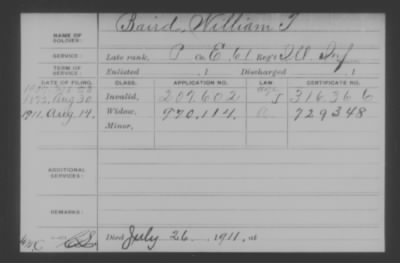 NAME OF SOLDIER: Baird, William T.
SERVICE: Late rank, P Co. E, 61 Reg't Ill Inf
TERM OF SERVICE: Enlisted , 1 . Discharged , 1 .
DATE OF FILING. CLASS. APPLICATION NO. LAW CERTIFICATE NO.
1877. Aug 30 Invalid, 209.602 J 316.366
1911. Aug. 14. Widow, 970.114 729348
Minor,
ADDITIONAL SERVICES:
REMARKS:
Died July 26, 1911, at